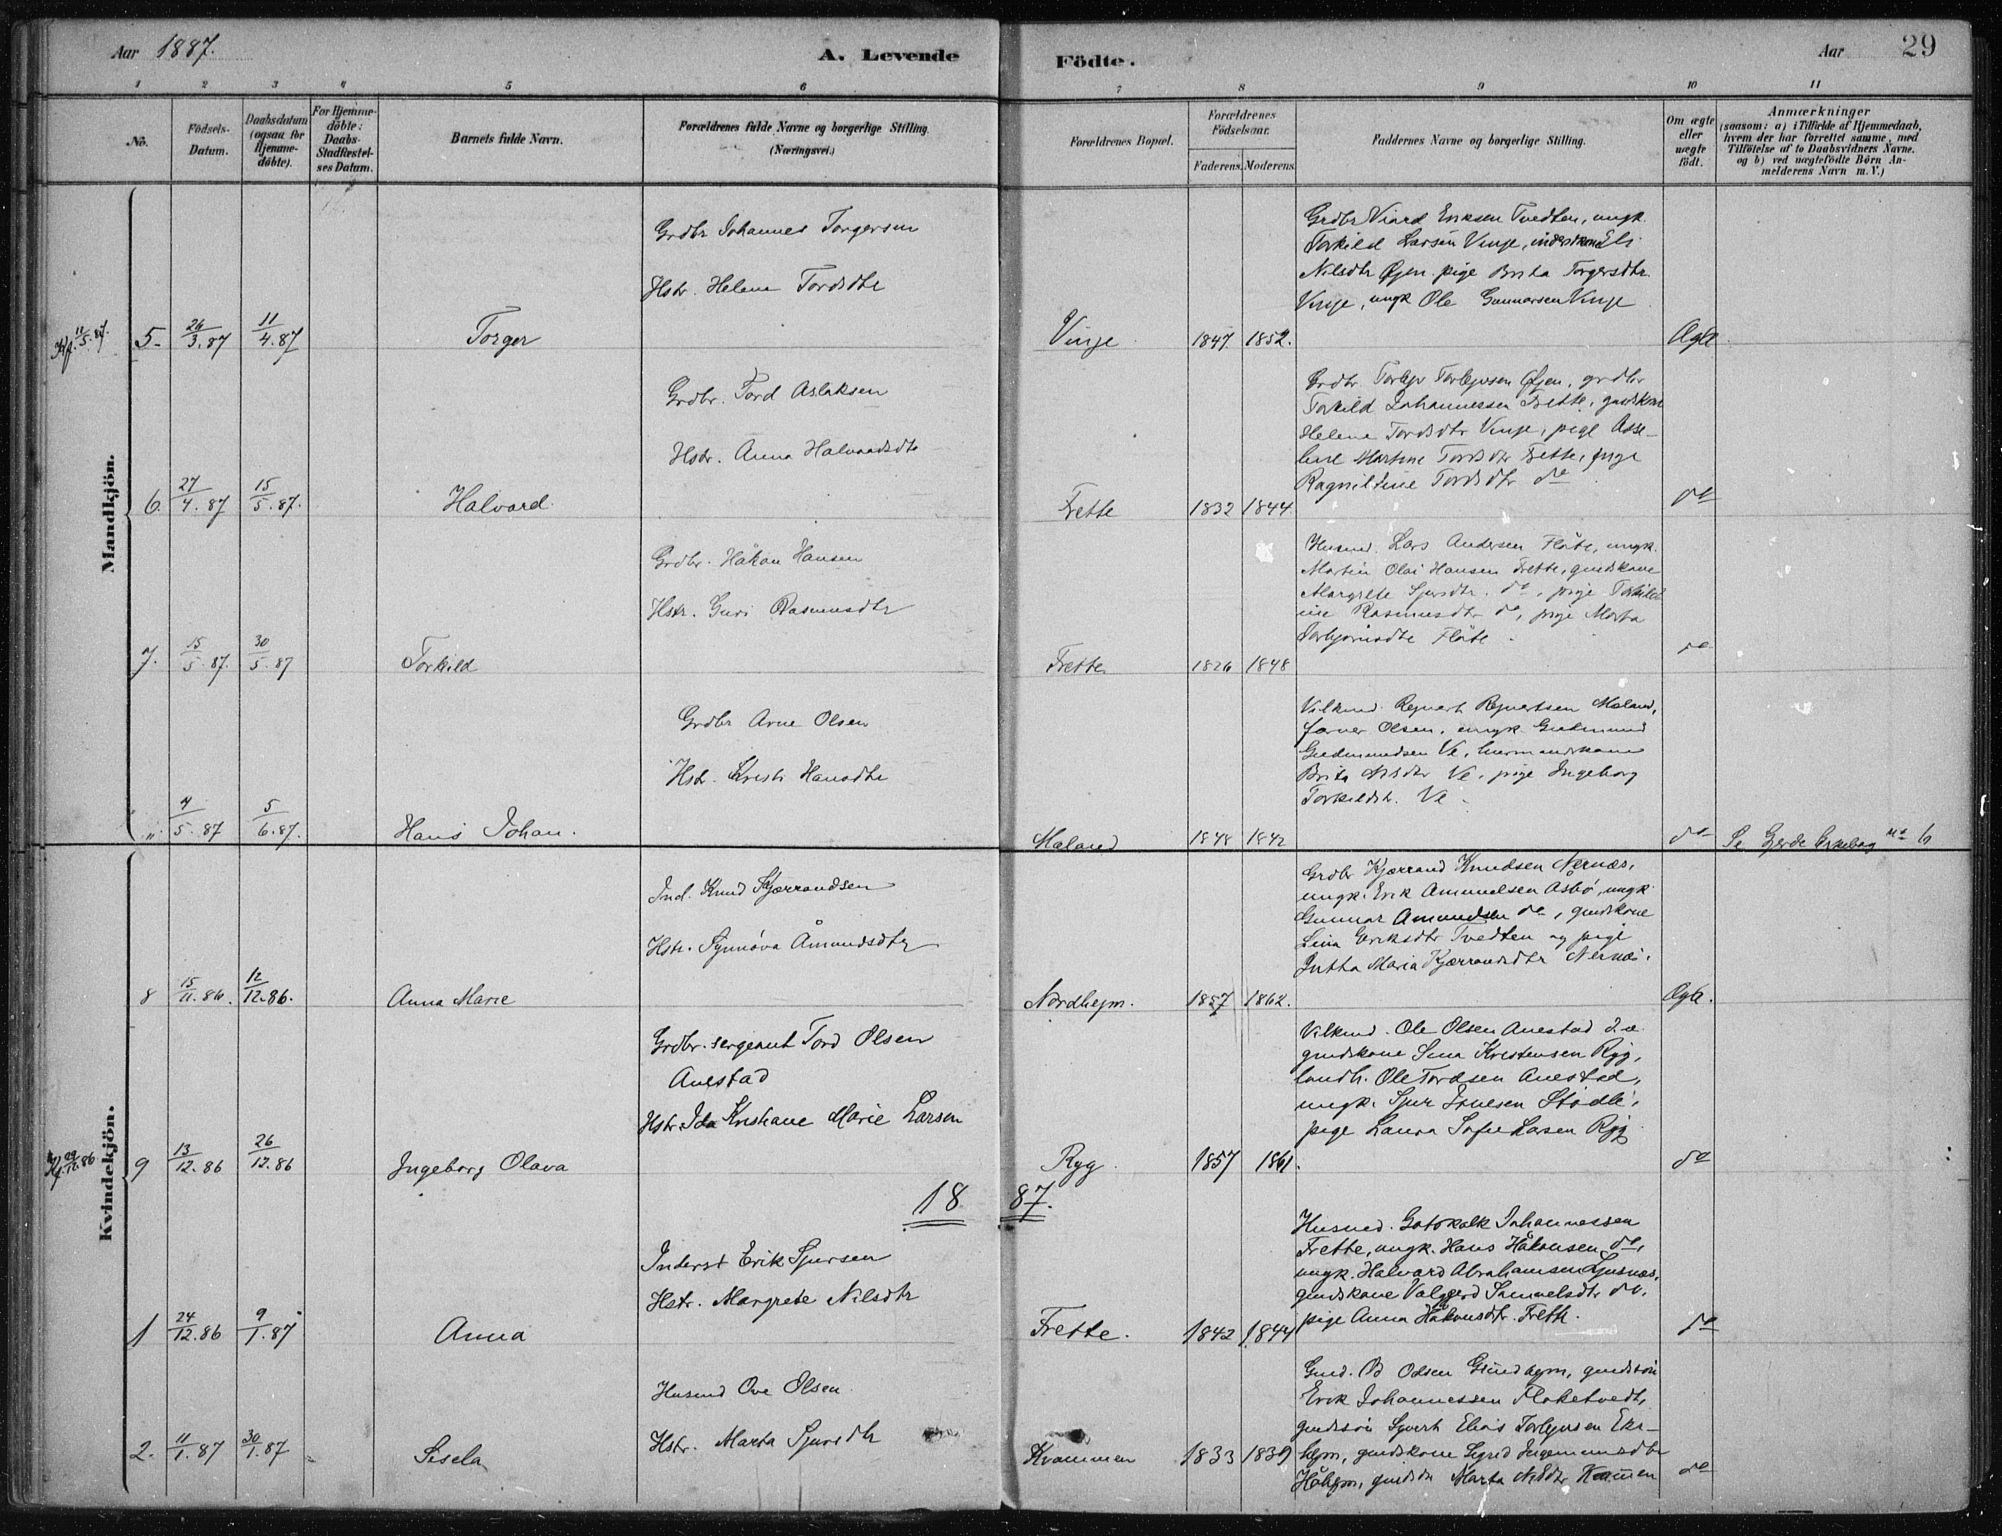 Aar 1887.
A. Levende
Födte.
Aar
29
1 2 3 4 5 6 7 8 9 10 11
No.
Födsels-
Datum.
Daabsdatum
(ogsaa for
Hjemme-
döbte).
For Hjemme-
döbte:
Daabs-
Stadfæstel-
ses Datum.
Barnets fulde Navn.
Forældrenes fulde Navne og borgerlige Stilling.
(Næringsvei.)
Forældrenes Bopæl.
Forældrenes
Födselsaar.
Faderens. Moderens.
Faddernes Navne og borgerlige Stilling.
Om ægte
eller
uægte
födt.
Anmærkninger
(saasom: a) i Tilfælde af Hjemmedaab,
hvem der har forrettet samme, med
Tilföielse af to Daabsvidners Navne.
og b) ved uægtefödte Börn An-
melderens Navn m. V.)
Mandkjön.
Kf. 11/5.87.
5. 26/3.87 11/4.87 Torger
Grdbr Johannes Torgersen
Hstr. Helena Tordsdtr
Vinje 1847. 1852.
Grdbr Viard Eriksen Tvedten, ungk.
Torkild Larsen Vinje, inderstkone Eli
Nilsdtr Øjen. pige Brita Torgersdtr.
Vinje, ungk Ole Gunnarsen Vinje
Ægte
6. 27/4.87 15/5.87. Halvard.
Grdbr. Tord Aslaksen
Hstr. Anna Halvardsdtr
Frette 1832 1844
Grdbr. Torleiv Torleivsen Øjen, grdbr
Torkild Johannessen Frette, gmdskone
Helena Tordsdtr Vinje, pige Asse-
line Martine Tordsdtr Frette, pige
Ragnilline Tordsdtr do
do
7. 15/5.87. 30/5.87 Torkild
Grdbr. Håkan Hansen
Hstr. Guri Rasmusdtr
Frette 1826 1848
Husmd. Lars Andersen Flåte, ungk.
Martin Olai Hansen Frette, gmdskone
Margrete Sjursdtr. do, pige Torkild
ine Rasmusdtr do, pige Marta
Torbjørnsdtr Flåte.
do
„. 4/5.87 5/6.87. Hans Johan.
Grdbr Arne Olsen
Hstr. Kristi Hansdtr
Mæland 1848 1842
Vilkmd. Rejnert Rejnertsen Mæland,
farver Olsen, ungk Gudmund
Gudmundsen Ve, husmandskone
Brita Nilsdtr Ve, pige Ingeborg
Torkildsdtr. Ve.
do
Se Gjerde Kirkebog No 6
Kvindekjön.
8 15/11.86. 12/12.86. Anna Marie
Ind. Knud Kjærrandsen
Hstr. Synnøva Åmundsdtr
Nordhejm. 1857 1862.
Grdbr Kjærrand Knudsen Nernæs,
ungk. Erik Amundsen Åsbø, ungk
Gunnar Amundsen do, gmdskone
Lina Eriksdtr Tvedten og pige
Jutta Maria Kjærrandsdtr Nernæs.
Ægte.
Kf. 29/12.86
9 13/12.86 26/12.86 Ingeborg Olava
Grdbr. sergeant Tord Olsen
Anestad
Hstr. Ida Kristiane Marie Larsen
Ryg 1857 1861.
Vilkmd. Ole Olsen Anestad d.æ.
gmdskone Sina Kristensen Ryg,
landh. Ole Tordsen Anestad,
ungk. Sjur Ennesen Stødle,
pige Laura Sofie Larsen Ryg
do
1887.
1 24/12.86 9/1.87 Anna
Inderst Erik Sjursen
Hstr. Margrete Nilsdtr
Frette. 1842 1844
Husmd. Gotskalk Johannessen
Frette, ungk. Hans Håkonsen do,
ungk. Halvard Abrahamsen Ljusnæs,
gmdskone Valgjerd Samuelsdtr do,
pige Anna Håkonsdtr. Frette.
do
2. 11/1.87 30/1.87 Sisela
Husmd Ove Olsen
Hstr. Marta Sjursdtr
Kvammen 1833 1839
Gmd. O Olsen Grindhejm, gmdssøn
Erik Johannessen Floketvedt,
gmdssøn Sjvert Elias Torleivsen Eke-
hejm, gmdskone Sigrid Ingemunsdtr
Håhejm, gmdsdtr Marta Nilsdtr Kvammen
do